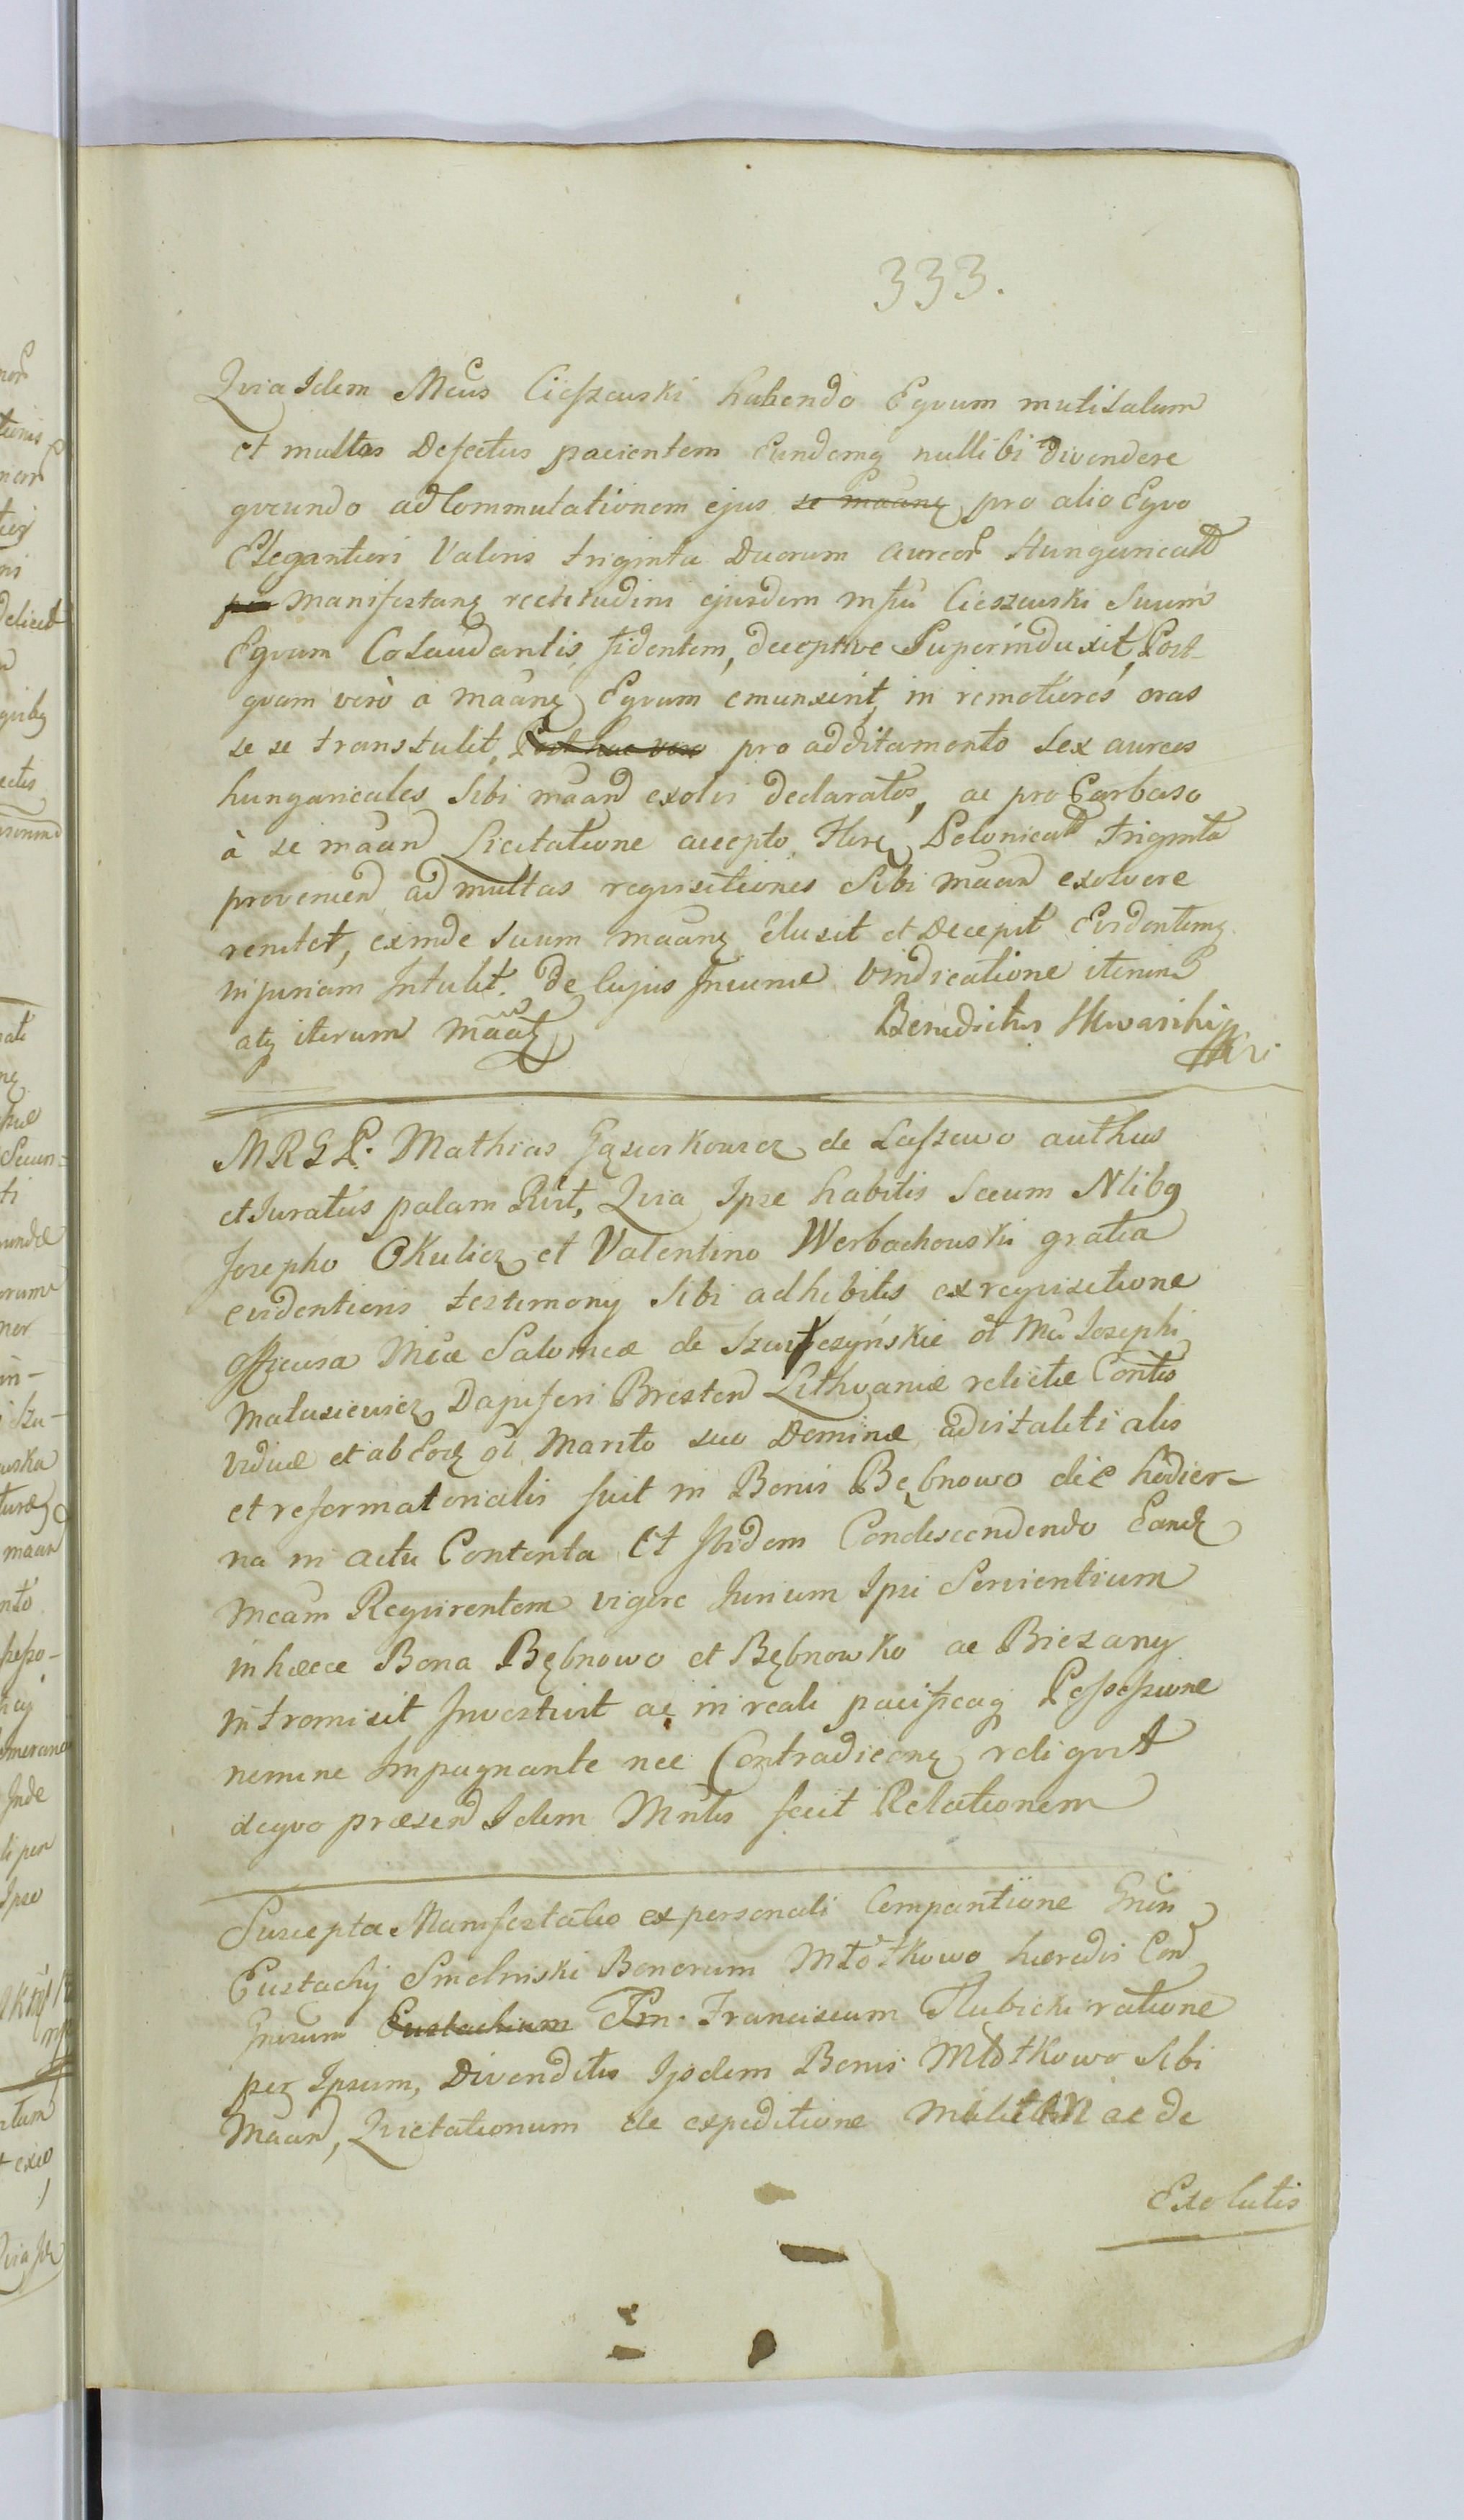 333.
Quia Idem Mcus Cieszewski habendo Equum mutilatum
et multos Defectus pacientem Eundemq nullibi Divendere
queundo ad Commutationem ejus se maanq pro alio Equo
Elegantiori Valoris triginta Duorum aureor Hungarical
per Manifestanq rectitudini ejusdem Cieszewski Suum
Equum Colaudantis fidentem, deceptive Superinduxit, Post-
quam vero a maanq Equum emunxerit, in remotiores oras
se se transtulit, Post hac vero pro additamento Sex aureos
hungaricales Sibi maand exolvi declaratos, ac pro Carbaso
à se maan Licitatione accepto Flor Polonical triginta
provenien ad multas requisitiones Sibi maand exolvere
renitet, exinde Suum maanq elusit et Decepit Evidentemq
injuriam Intulit. De Cujus Injuriae Vindicatione iterum
atq iterum maatq Benedictus Skwarski
MRGL. Mathias Gąsiorkowicz de Laszewo authus
et Juratus palam Rlit, Quia Ipse habitis Secum Nlibq
Josepho Okulicz et Valentino Werbachowski gratia
evidentioris testimony Sibi adhibitis ex requisitione
officiosa Mcae Salomeae de Mci Josephi
Matusiewicz Dapiferi Bresten Lithvaniae relictae Contis
viduae et ab Eodz ol Marito suo Dominae advitalitialis
et reformatorialis fuit in Bonis Bębnowo die hodier-
na in actu Contenta Et Ibidem Condescendendo Eandz
Mcam Requirentem vigore Jurium Ipsi Servientium
in haece Bona Bębnowo et Bębnowko ac Biezany
intromisit Investivit ac in reali pacificaq Possessione
nemine Impugnante nec Contradicenq reliquit
de quo praesen Idem Mnlis fecit Relationem
Suscepta Manifestatio ex personali Comparitione Gnen
Eustachij Smolniski Bonorum Młotkowo haeredis Con
Gnosum Eustachium Tm. Franciscum Hlubicki ratione
per Ipsum, Divenditis Ijsdem Bonis Młotkowo Sibi
Maan, Quietationum de expeditione ac de
Exolutis